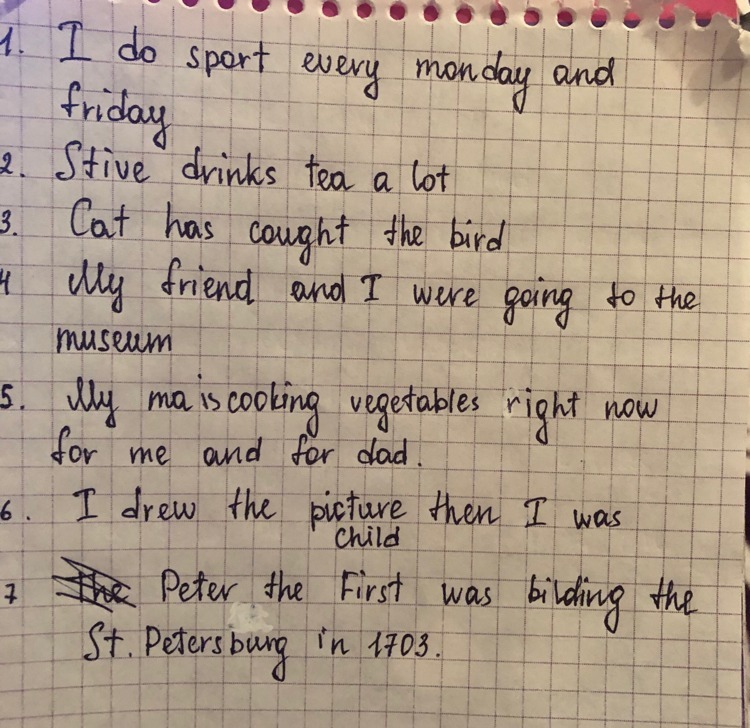 1. I do sport every monday and
friday
2. Stive drinks tea a lot
3. Cat has cought the bird
4 My friend and I were going to the
museum
5. My ma is cooking vegetables right now
for me and for dad.
6. I drew the picture then I was
child
7 The Peter the First was bilding the
St. Petersburg in 1703.